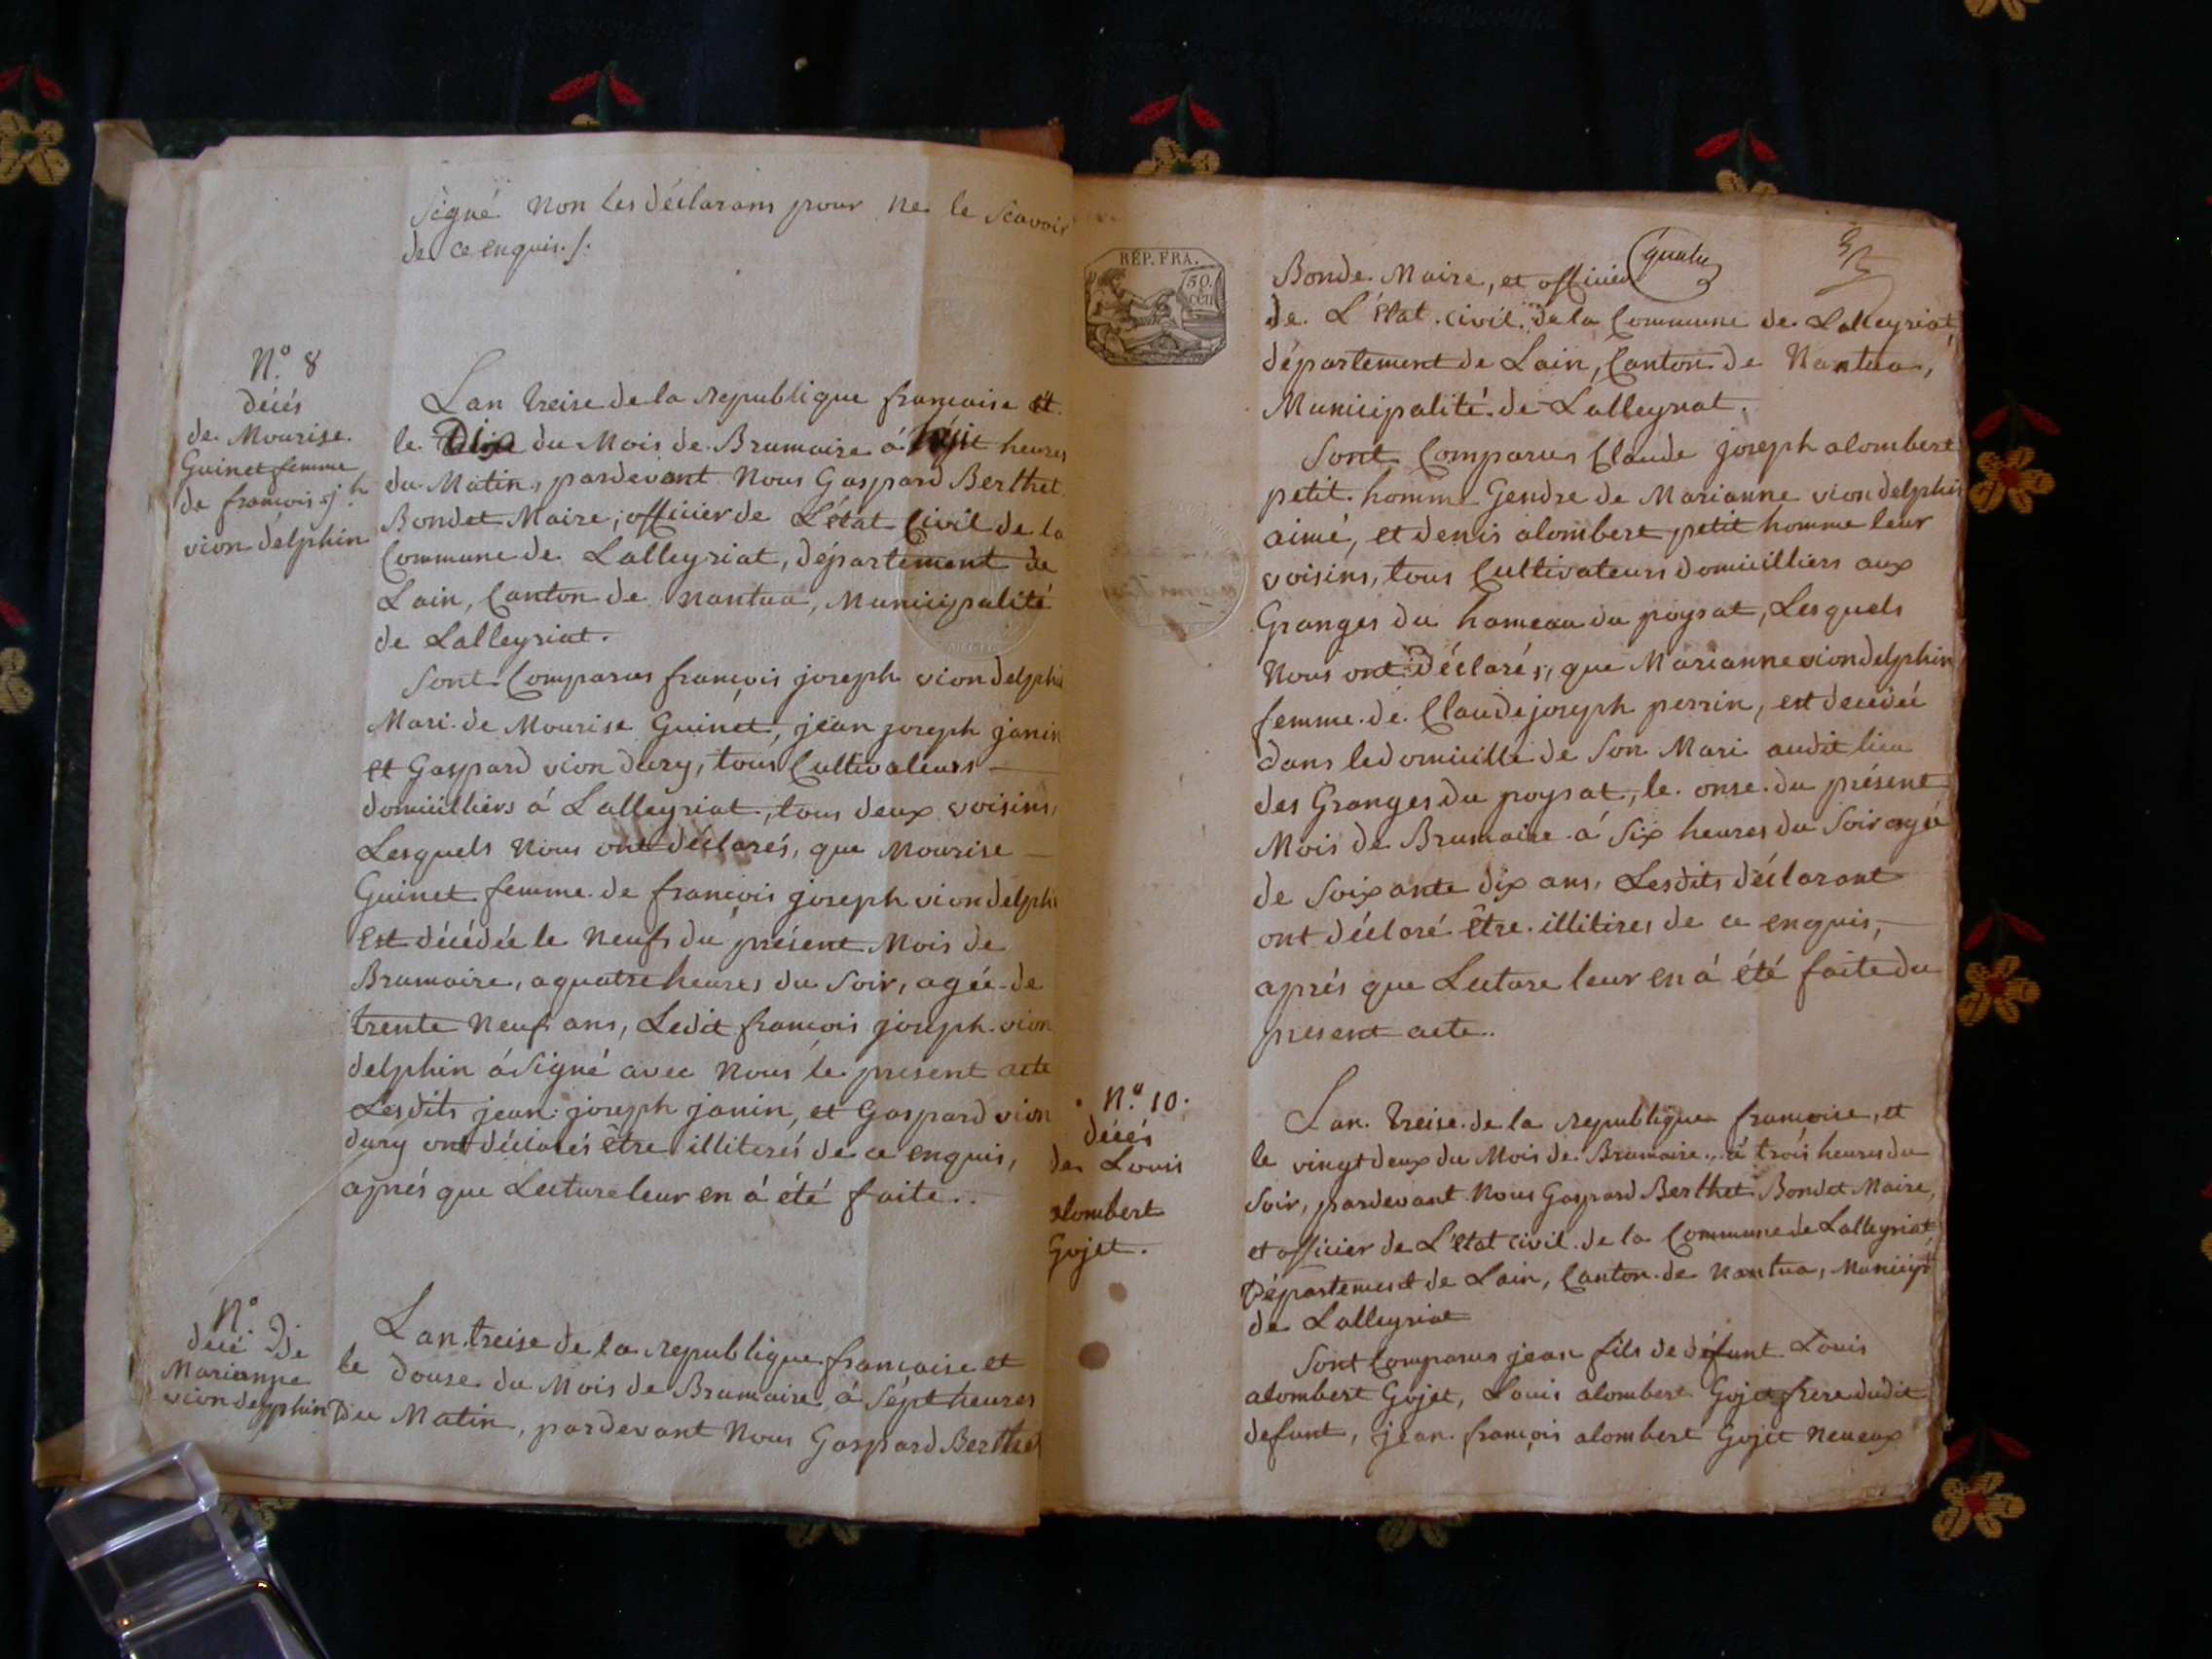 Signé Non les déclarans pour ne le Scavoir
de ce enquis./.
N.º 8
décés
de Mourise
Guinet femme
de françois j.h
vion delphin
Lan treise de la republique francaise et
le Dix du Mois de Brumaire á huit heures
du Matin, pardevant Nous Gaspard Berthet
Bondet Maire, officier de L'état Civil de la
Commune de Lalleyriat, département de
Lain, Canton de Nantua, Municipalité
de Lalleyriat.
Sont Comparus françois joseph vion delphi
Mari de Mourise Guinet, jean joseph janin
et Gaspard vion dury, tous Cultivateurs
domicilliers á Lalleyriat, tous deux voisins,
Lesquels Nous ont déclarés, que Mourise
Guinet femme de françois joseph vion delphi
est décédée le neuf du présent Mois de
Brumaire, a quatre heures du Soir, agée de
trente Neuf ans, Ledit françois joseph vion
delphin á Signé avec Nous le present acte
Lesdits jean joseph janin, et Gaspard vion
dury ont déclarés être illiterés de ce enquis,
aprés que Lecture leur en á été faite..
N.º 9.
décé de
Marianne
vion delphin
Lan treise de la republique francaise et
le douse du Mois de Brumaire á Sépt heures
Du Matin, pardevant Nous Gaspard Berthet
REP. FRA.
50
cen
quatre
Bonde Maire, et officier
de L'état civil de la Commune de Lalleyriat,
département de Lain, Canton de Nantua,
Municipalité de Lalleyriat.
Sont Comparus Claude joseph alombert
petit homme Gendre de Marianne vion delphin
aimé, et denis alombert petit homme leur
voisins, tous Cultivateurs domicilliers aux
Granges du hameau du poysat, Lesquels
Nous ont déclarés, que Marianne vion delphin
femme de Claude joseph perrin, est décédée
dans le domicille de Son Mari audit lieu
des Granges du poysat, le onse du présent
Mois de Brumaire á Six heures du Soir agée
de Soixante dix ans, Lesdits déclarant
ont déclaré être illitires de ce enquis,
aprés que Lecture leur en á été faite du
present acte..
N.º 10.
décés
de Louis
alombert
Gojet.
Lan treise de la republique francoise, et
le vingt deux du Mois de Brumaire á trois heures du
Soir, pardevant Nous Gaspard Berthet Bondet Maire,
et officier de L'état civil de la Commune de Lalleyriat,
Département de Lain, Canton de Nantua, Municipt
de Lalleyriat
Sont Comparus jean fils de défunt Louis
alombert Gojet, Louis alombert Gojet frere dudit
defunt, jean françois alombert Gojet neveux